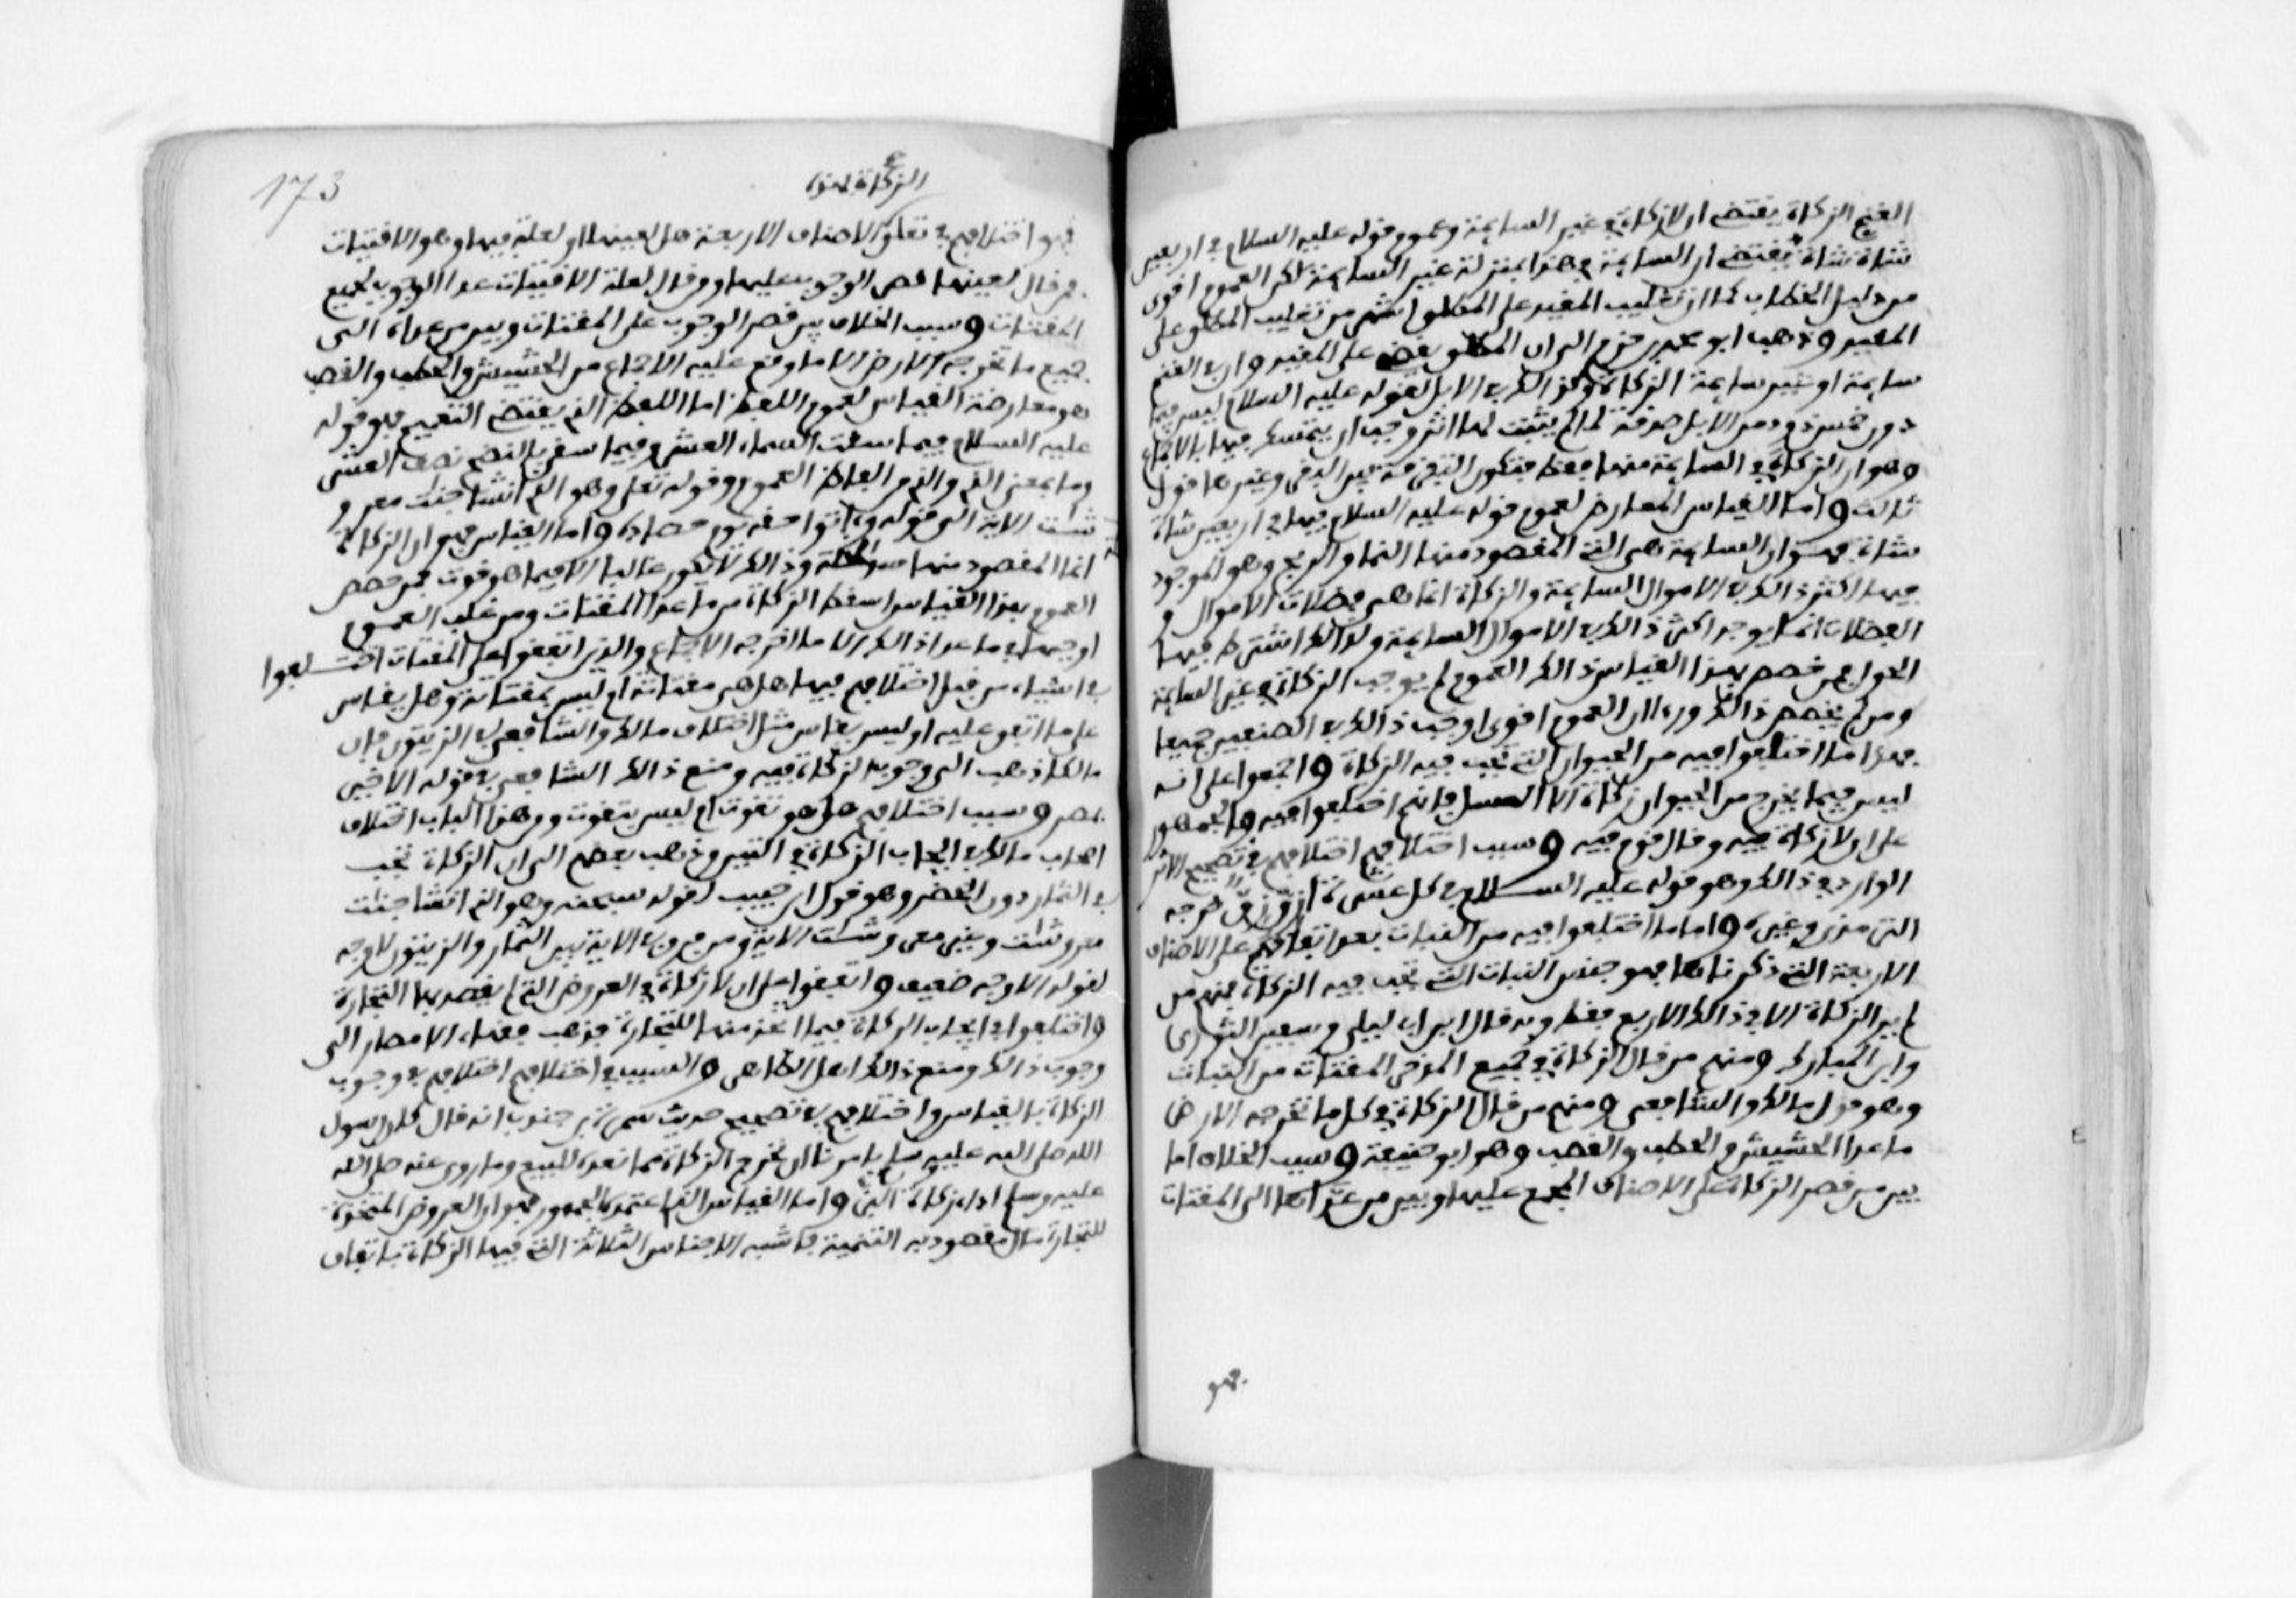 الغنم الزكاة يقتضي ان لا زكاة في غير السايمة وعموم قوله عليه السلام في اربعين
شاة شاة يقتضي ان السايمة في هذا بمنزلة غير السايمة لكن العموم اقوى
من دليل الخطاب كما ان تغليب المقيد على المطلق اشهر من تغليب المطلق على
المقيد وذهب ابو محمد بن حزم الى ان المطلق يقضي على المقيد وان في الغنم
سايمة او غير سايمة الزكاة وكذالك في الابل لقوله عليه السلام ليس فيما
دون خمس ذود من الابل صدقة لما لم يثبت لها اثر وجب ان يتمسك فيها بالاجماع
وهو ان الزكاة في السايمة منها فقط فتكون التفرقة بين البقر وغيرها قول
ثالث واما القياس المعارض لعموم قوله عليه السلام فيها في اربعين شاة
شاة فهو ان السايمة هي التي المقصود منها النما والربح وهو الموجود
فيها اكثر ذالك في الاموال السايمة والزكاة انما هي فضلات الاموال و
الفضلات انما يوجد اكثر ذالك في الاموال السايمة ولذالك اشترط فيها
الحول فمن خصص بهذا القياس ذالك العموم لم يوجب الزكاة في غير السايمة
ومن لم يخصص ذالك وراى ان العموم اقوى اوجب ذالك في الصنفين جميعا
فهذا ما اختلفوا فيه من الحيوان التي تجب فيه الزكاة واجمعوا على انه
ليس فيما يخرج من الحيوان زكاة الا العسل فانهم اختلفوا فيه فالجمهور
على ان لا زكاة فيه وقال قوم فيه وسبب اختلافهم اختلافهم في تصحيح الاثر
الوارد في ذالك وهو قوله عليه السلام في كل عشرة ازق زق خرجه
الترمذي وغيره واما ما اختلفوا فيه من النبات بعد اتفاقهم على الاصناف
الاربعة التي ذكرناها فهو جنس النبات التي تجب فيه الزكاة فمنهم من
لم ير الزكاة الا في ذالك الاربع فقط وبه قال ابن ابي ليلى وسفين الثوري
وابن المبارك ومنهم من قال الزكاة في جميع المدخر المقتات من النبات
وهو قول مالك والشافعي ومنهم من قال الزكاة في كل ما تخرجه الارض
ما عدا الحشيش والحطب والقصب وهو ابو حنيفة وسبب الخلاف اما
بين من قصر الزكاة على الاصناف المجمع عليها وبين من عداها الى المقتات
فهو
173
الزكاة
فهو اختلافهم في تعلق الاصناف الاربعة هل لعينها او لعلة فيها وهو الاقتيات
فمن قال لعينها قصر الوجوب عليها ومن قال لعلة الاقتيات عدا الوجوب لجميع
المقتات وسبب الخلاف بين من قصر الوجوب على المقتات وبين من عداه الى
جميع ما تخرجه الارض الا ما وقع عليه الاجماع من الحشيش والحطب والقصب
هو معارضة القياس لعموم اللفظ اما اللفظ الذي يقتضي التعميم فهو قوله
عليه السلام فيما سقت السماء العشر وفيما سقي بالنضح نصف العشر
وما بمعنى الذي والذي من الفاظ العموم وقوله تعلى وهو الذي انشا جنات معرو
شات الاية الى قوله واتوا حقه يوم حصاده واما القياس فهو ان الزكاة
انما المقصود منها سد الخلة وذالك لا يكون غالبا الا فيما هو قوت فمن خصص
العموم بهذا القياس اسقط الزكاة من ما عدا المقتات ومن غلب العموم
اوجبها في ما عدا ذالك الا ما اخرجه الاجماع والذين اتفقوا على المقتات اختلفوا
في اشياء من قبل اختلافهم فيها هل هي مقتاتة ام ليس بمقتاتة وهل يقاس
على ما اتفق عليه او ليس يقاس مثل اختلاف مالك والشافعي في الزيتون فان
مالكا ذهب الى وجوب الزكاة فيه ومنع ذالك الشافعي في قوله الاخير
بمصر وسبب اختلافهم هل هو قوت ام ليس بقوت ومن هذا الباب اختلاف
اصحاب مالك في ايجاب الزكاة في التين وذهب بعضهم الى ان الزكاة تجب
في الثمار دون الخضر وهو قول ابن حبيب لقوله سبحنه وهو الذي انشا جنات
معروشات وغير معروشات الاية ومن فرق في الاية بين الثمار والزيتون لا وجه
لقوله الا وجه ضعيف واتفقوا على ان لا زكاة في العروض التي لم يقصد بها التجارة
واختلفوا في ايجاب الزكاة فيما اتخذ منها للتجارة فذهب فقهاء الامصار الى
وجوب ذالك ومنع ذالك اهل الظاهر والسبب في اختلافهم اختلافهم في وجوب
الزكاة بالقياس واختلافهم في تصحيح حديث سمرة بن جندب انه قال كان رسول
الله صلى الله عليه وسلم يامرنا ان نخرج الزكاة مما نعده للبيع وما روي عنه صلى الله
عليه وسلم اد زكاة البز واما القياس الذي اعتمده الجمهور فهو ان العروض المتخذة
للتجارة مال مقصود به التنمية فاشبه الاجناس الثلاثة التي فيها الزكاة باتفاق